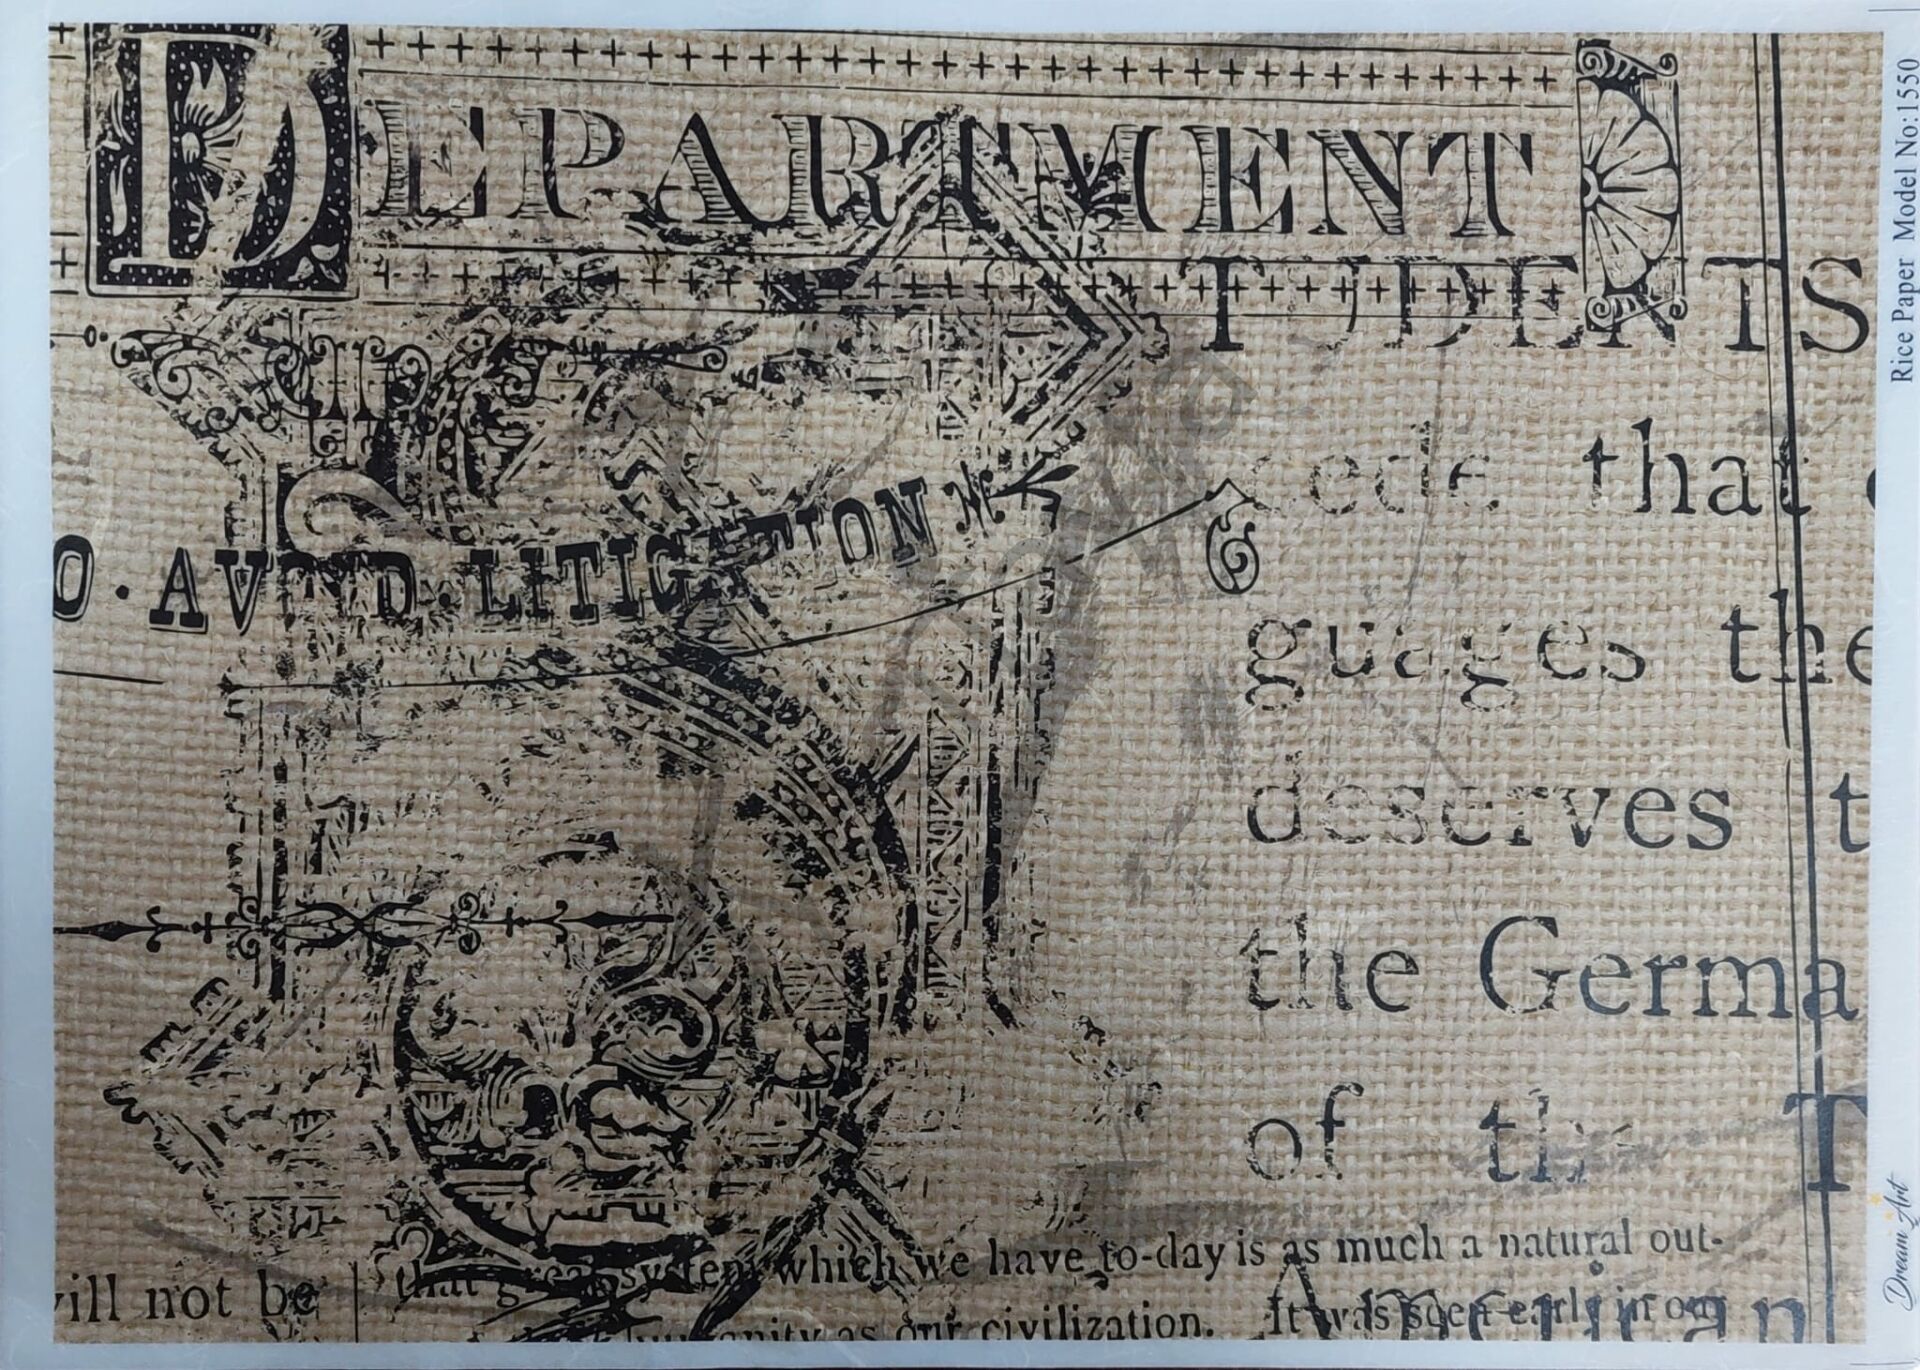 DEPARTMENT
TUDENTS
cede that
O · AVOID · LITIGATION
guages the
deserves t
the Germa
of the T
that great system which we have to-day is as much a natural out-
will not be
humanity as our civilization. It was seen early in our
American
Rice Paper Model No:1550
Dream Art